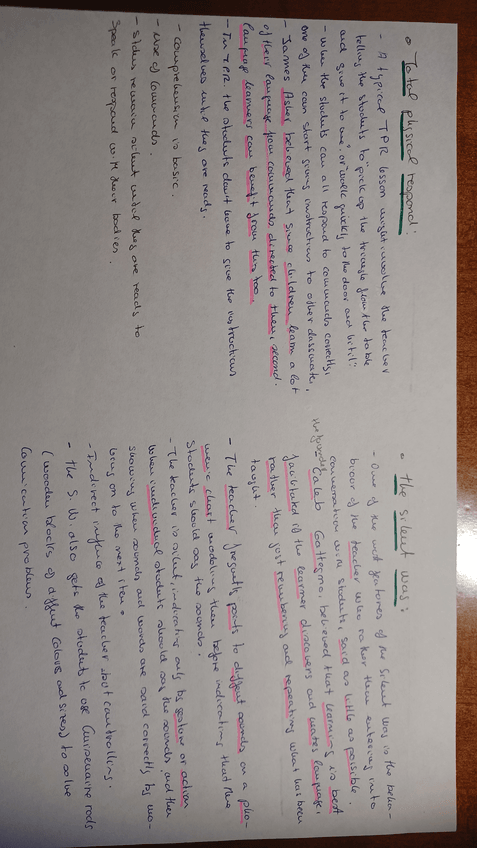 • Total physical respond:
- A typical TPR lesson might involve the teacher
telling the students to "pick up the triangle from the table
and give it to me" or walk quickly to the door and hit it".
- when the students can all respond to commands correctly,
one of the can start giving instructions to other classmates.
- James Asher believed that since children learn a lot
of their language from commands directed to them, second-
language learners can benefit from this too.
- In TPR the students don't have to give the instructions
themselves until they are ready.
- comprehension is basic.
- Use of commands.
- Stdens remain silent until they are reads to
speak or respond with their bodies.
• the silent was:
- One of the most features of the Silent way is the beha-
bior of the teacher who rather then entering into
conversation with students, said as little as possible.
the founder Caleb Gattegno, believed that learning is best
facilitated if the learner discovers and creates language,
rather than just remembering and repeating what has been
taught.
- The teacher frequently points to diffent sounds on a pho-
nemic chart modeling them before indicating that the
students should say the sounds.
- The teacher is silent, indicating only by gesture or action
when individual students should say the sounds and then
showing when sounds and words are said correctly by mo-
ving on to the next item.
- Indirect influence of the teacher - but controlling.
- the S.W. also gets the students to use Cuisenaire rods
(wooden blocks of diffent colours and sizes) to solve
comunication problems.